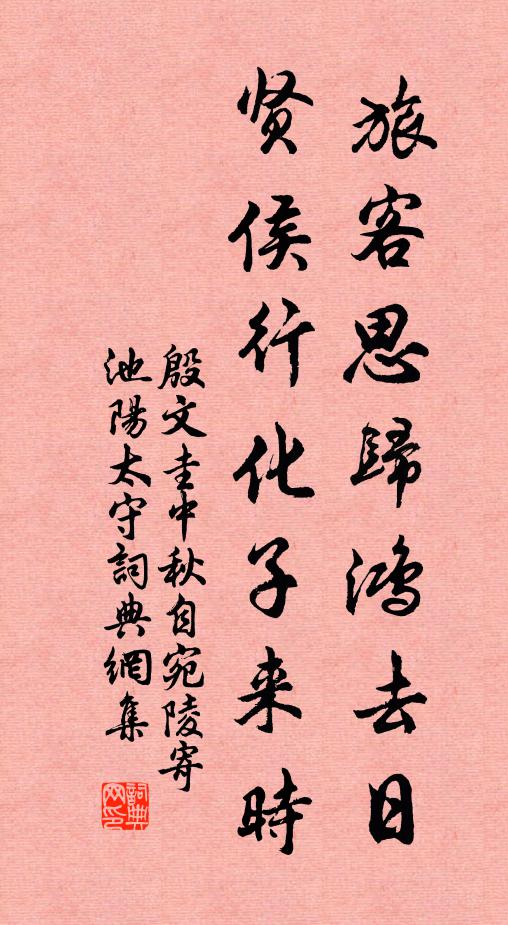 旅客思歸鸿去日
贤侯行化子来時
殷文圭中秋自宛陵寄
池陽太守詞典網集
詞典
网印